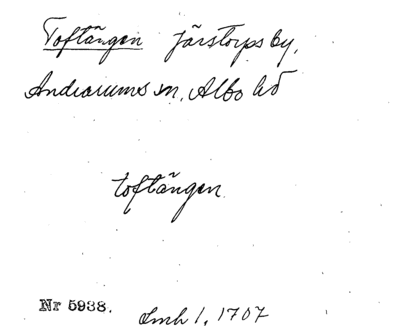 Toftängen Järstorps by,
Andrarums sn, Albo hd
toftängen
Nr 5938.
Lmh 1, 1707